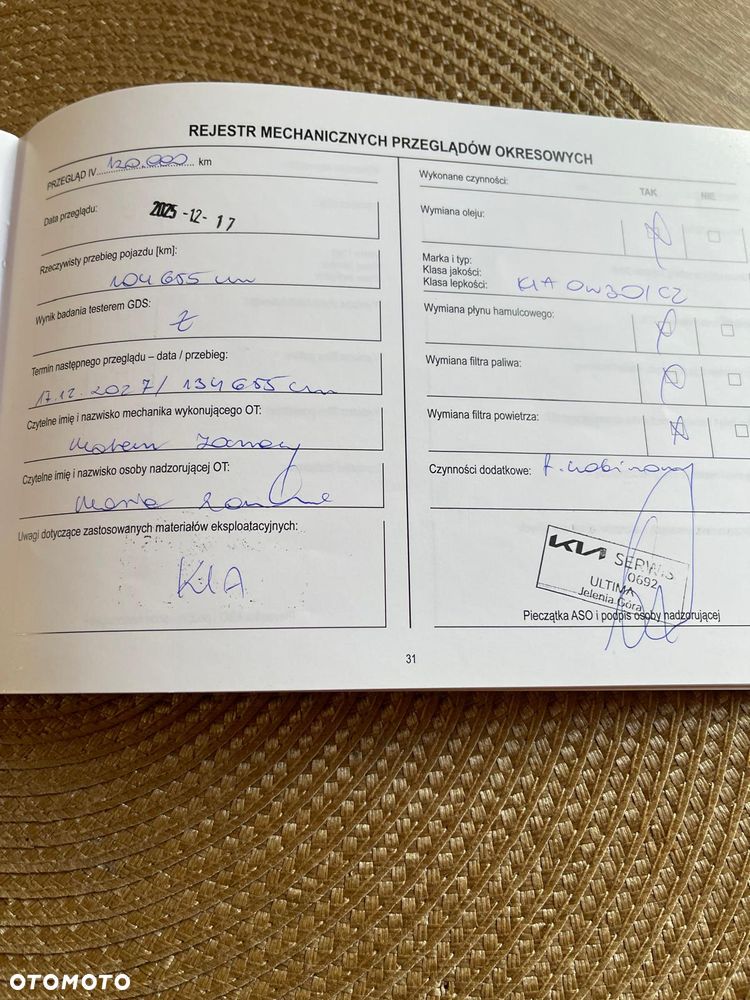 REJESTR MECHANICZNYCH PRZEGLĄDÓW OKRESOWYCH
PRZEGLĄD IV 120.000 km
Data przeglądu: 2025-12-17
Rzeczywisty przebieg pojazdu [km]:
104655 km
Wynik badania testerem GDS:
Termin następnego przeglądu – data / przebieg:
17.12.2027/ 134655 km
Czytelne imię i nazwisko mechanika wykonującego OT:
Czytelne imię i nazwisko osoby nadzorującej OT:
Uwagi dotyczące zastosowanych materiałów eksploatacyjnych:
KIA
Wykonane czynności:
TAK NIE
Wymiana oleju:
Marka i typ:
Klasa jakości:
Klasa lepkości: KIA 0W30/C2
Wymiana płynu hamulcowego:
Wymiana filtra paliwa:
Wymiana filtra powietrza:
Czynności dodatkowe:
KIA SERWIS
0692
ULTIMA
Jelenia Góra
Pieczątka ASO i podpis osoby nadzorującej
31
OTOMOTO